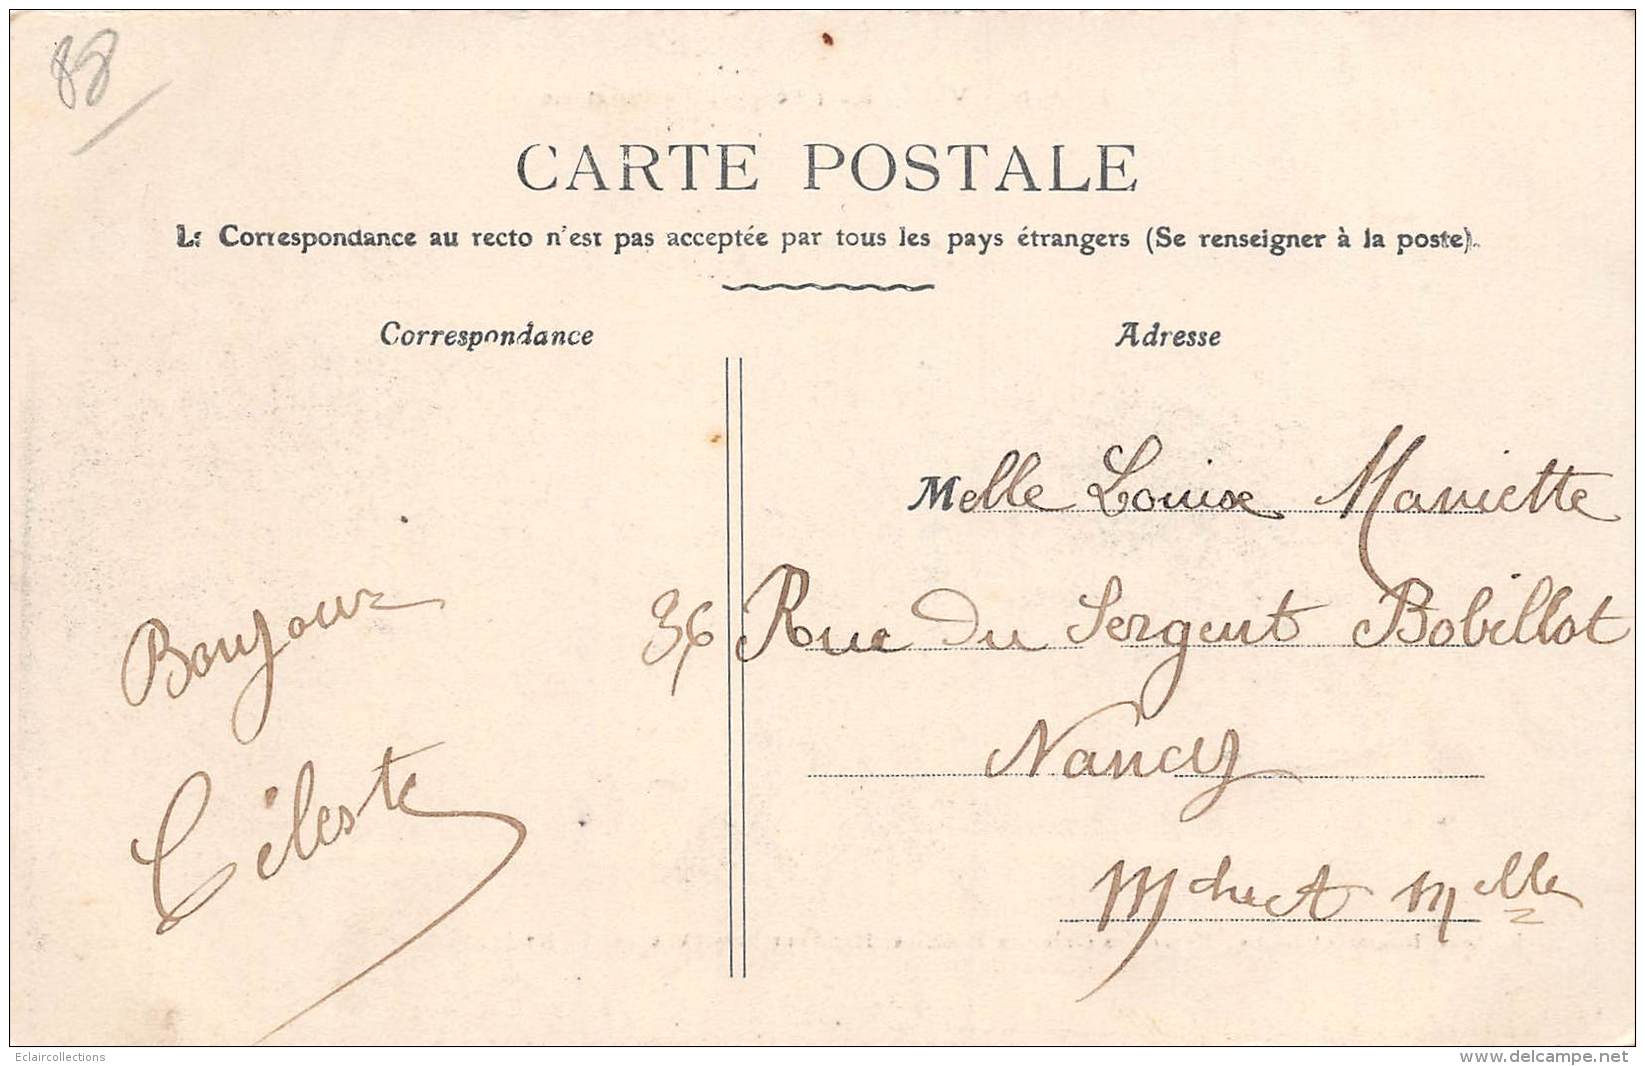 88
CARTE POSTALE
La Correspondance au recto n'est pas acceptée par tous les pays étrangers (Se renseigner à la poste).
Correspondance
Bonjour
Céleste
Adresse
Melle Louise Mariette
36 Rue du Sergent Bobillot
Nancy
Mthe et Melle
Eclaircollections
www.delcampe.net